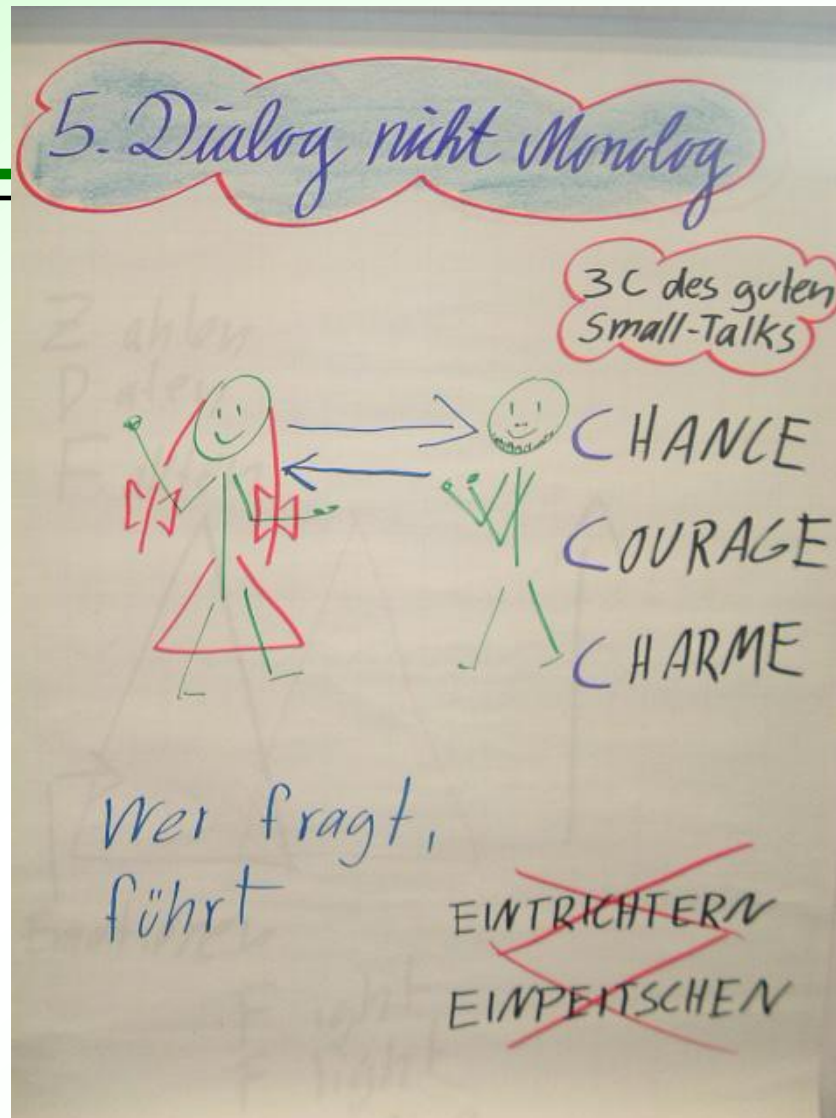 5. Dialog nicht Monolog
3C des guten
Small-Talks
CHANCE
COURAGE
CHARME
Wer fragt,
führt
EINTRICHTERN
EINPEITSCHEN
Zahlen
Daten